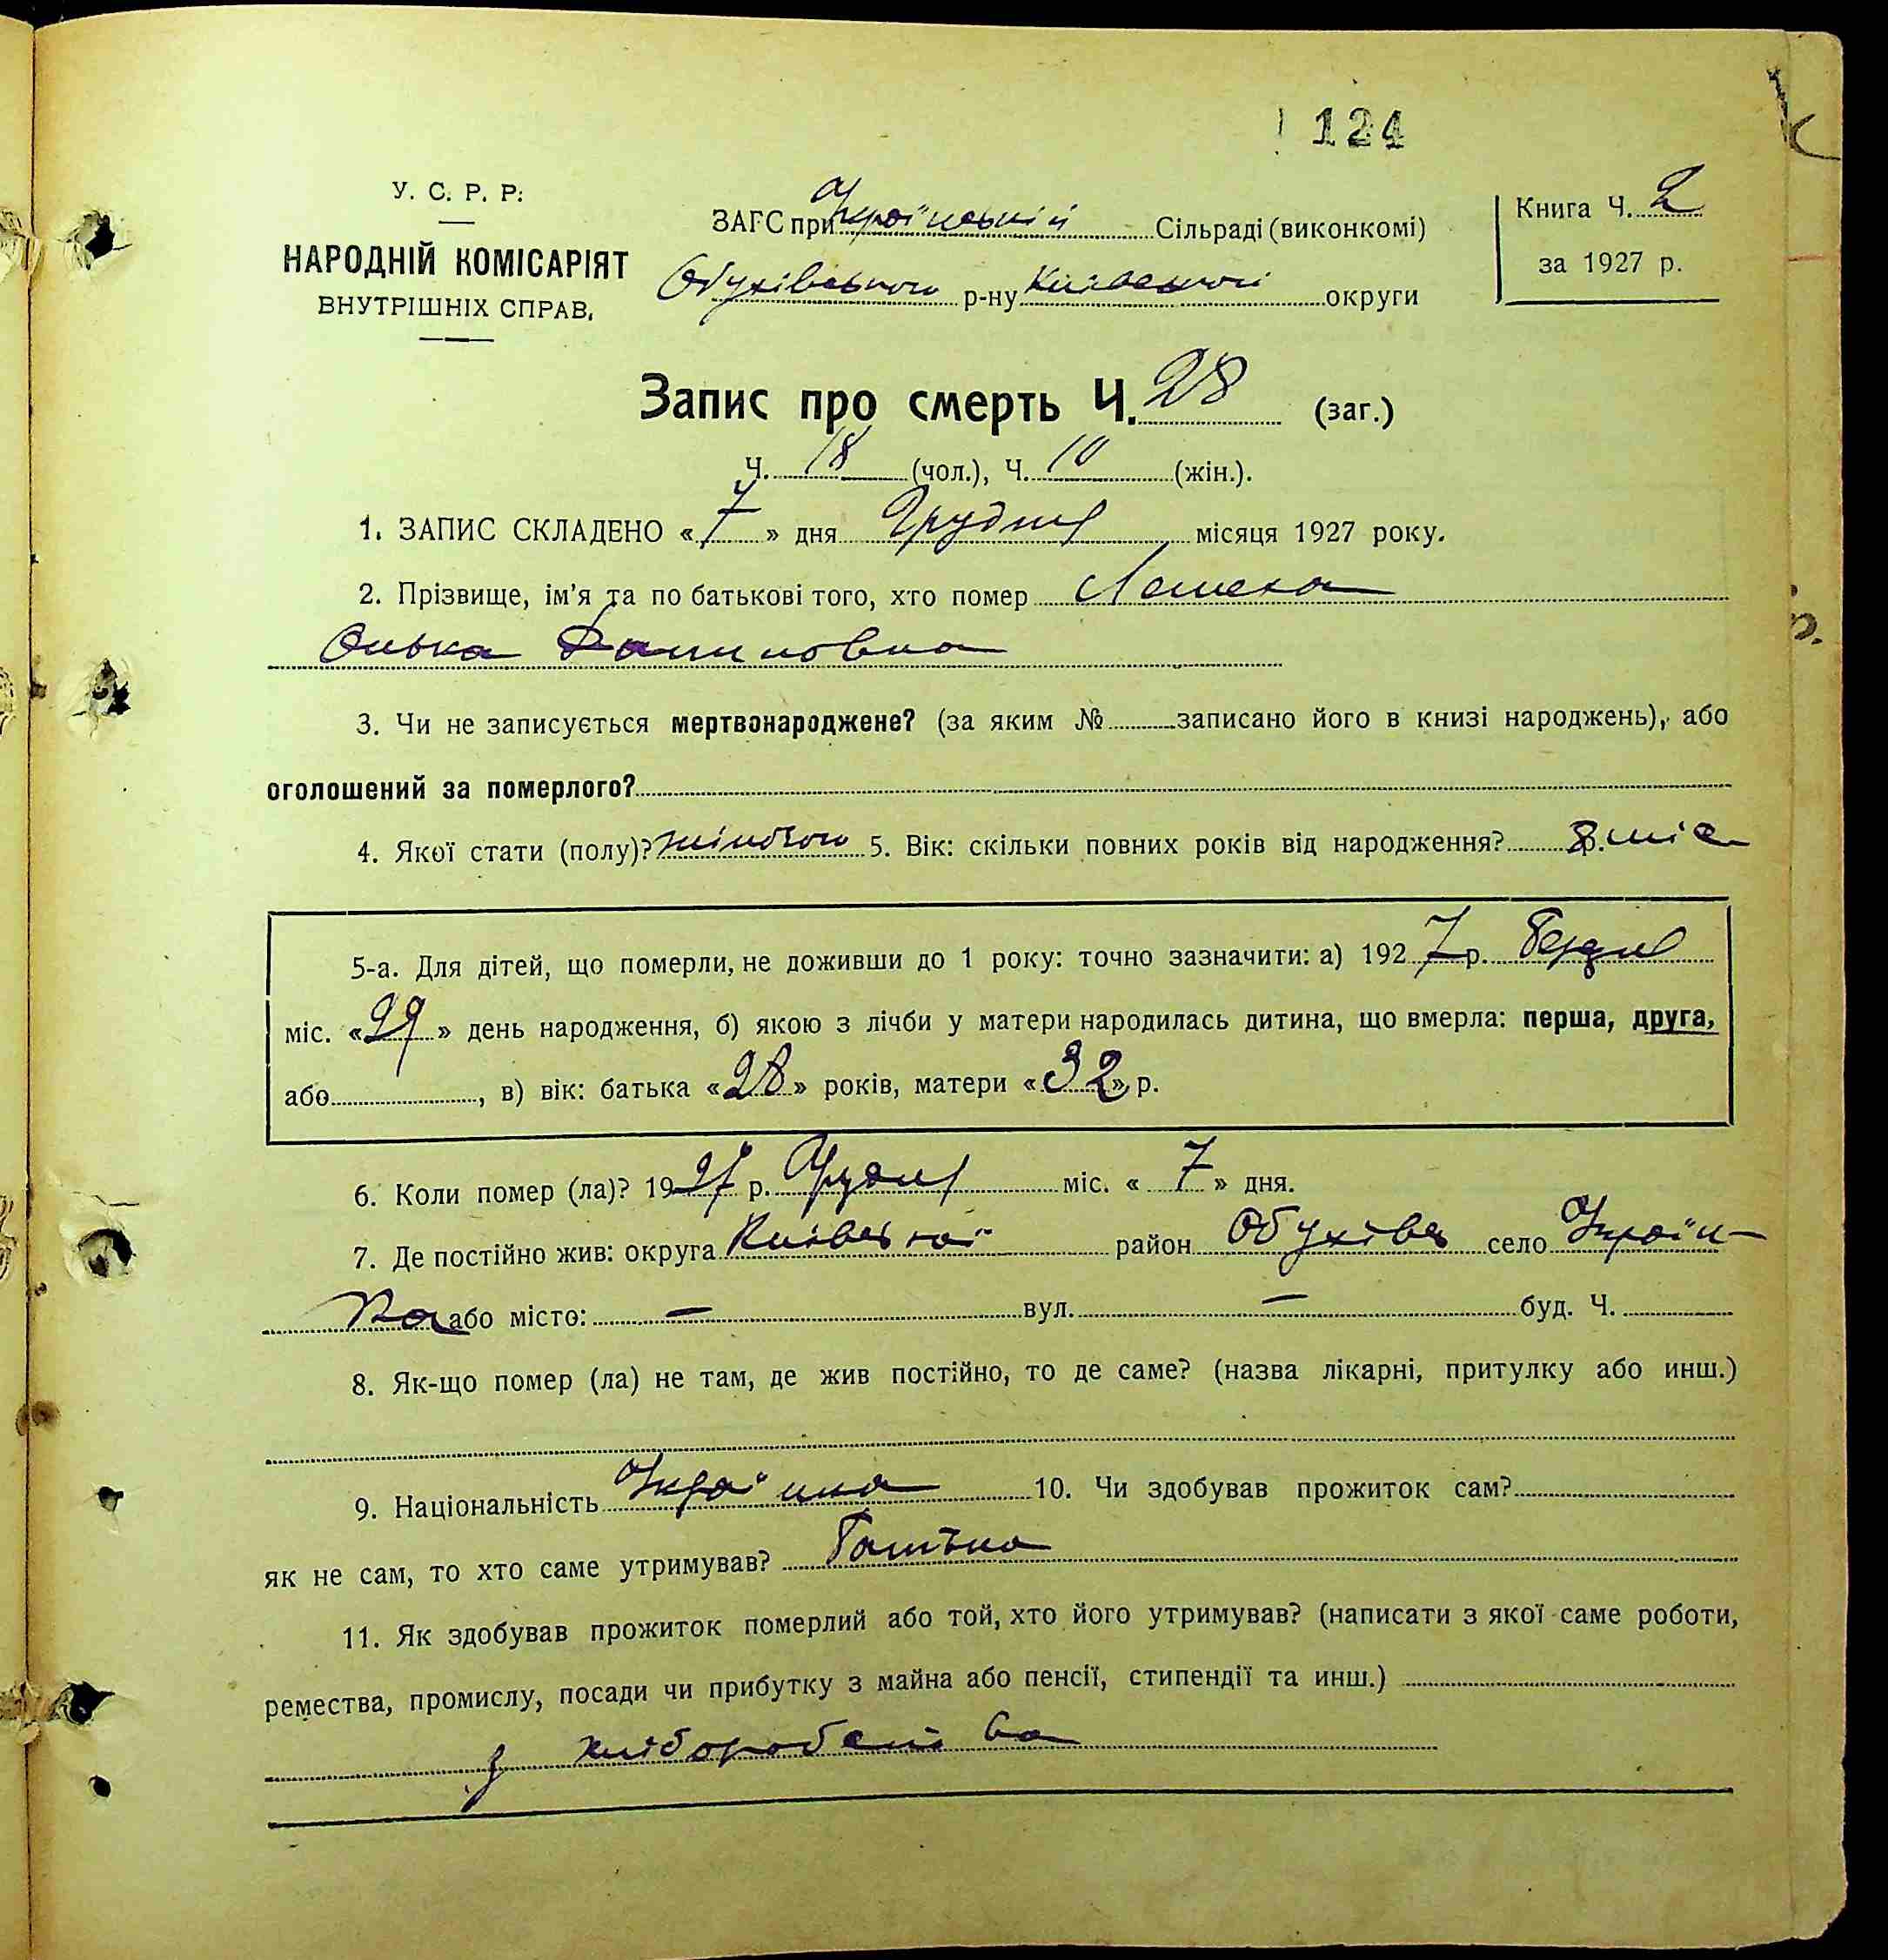 124
У. С. Р. Р.
НАРОДНІЙ КОМІСАРІЯТ
ВНУТРІШНІХ СПРАВ.
ЗАГС при Українській Сільраді (виконкомі)
Обухівського р-ну Київської округи
Книга Ч. 2
за 1927 р.
Запис про смерть Ч. 28 (заг.)
Ч. 18 (чол.), Ч. 10 (жін.).
1. ЗАПИС СКЛАДЕНО « 7 » дня Грудня місяця 1927 року.
2. Прізвище, ім'я та по батькові того, хто помер
Олька
3. Чи не записується мертвонароджене? (за яким № записано його в книзі народжень), або
оголошений за померлого?
4. Якої стати (полу)? жіночого 5. Вік: скільки повних років від народження? 8 міс
5-а. Для дітей, що померли, не доживши до 1 року: точно зазначити: а) 1927 р. Березня
міс. « 29 » день народження, б) якою з лічби у матери народилась дитина, що вмерла: перша, друга,
або , в) вік: батька « 28 » років, матери « 32 » р.
6. Коли помер (ла)? 1927 р. Грудня міс. « 7 » дня.
7. Де постійно жив: округа Київської район Обухівс село Україн-
ка або місто: — вул. — буд. Ч.
8. Як-що помер (ла) не там, де жив постійно, то де саме? (назва лікарні, притулку або инш.)
9. Національність Українка 10. Чи здобував прожиток сам?
як не сам, то хто саме утримував? Батько
11. Як здобував прожиток померлий або той, хто його утримував? (написати з якої саме роботи,
ремества, промислу, посади чи прибутку з майна або пенсії, стипендії та инш.)
з хліборобства